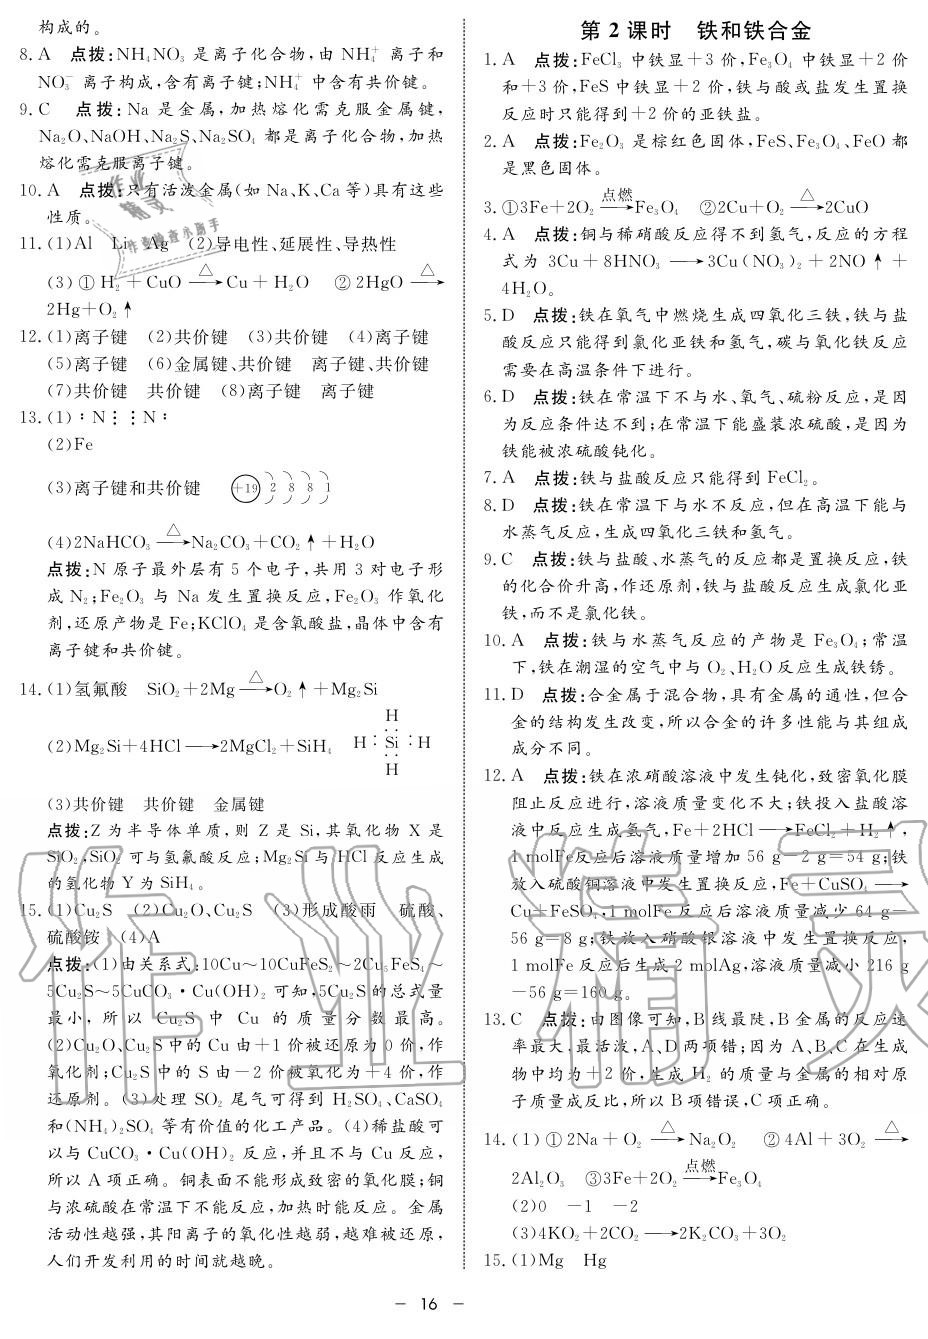 构成的。
8. A 点拨:NH₄NO₃ 是离子化合物,由 NH₄⁺ 离子和
NO₃⁻ 离子构成,含有离子键;NH₄⁺ 中含有共价键。
9. C 点拨:Na 是金属,加热熔化需克服金属键,
Na₂O、NaOH、Na₂S、Na₂SO₄ 都是离子化合物,加热
熔化需克服离子键。
10. A 点拨:只有活泼金属(如 Na、K、Ca 等)具有这些
性质。
11. (1)Al Li Ag (2)导电性、延展性、导热性
(3)①H₂+CuO —△→ Cu+H₂O ②2HgO —△→
2Hg+O₂↑
12. (1)离子键 (2)共价键 (3)共价键 (4)离子键
(5)离子键 (6)金属键、共价键 离子键、共价键
(7)共价键 共价键 (8)离子键 离子键
13. (1):N⋮⋮N:
(2)Fe
(3)离子键和共价键 +19 2 8 8 1
(4)2NaHCO₃ —△→ Na₂CO₃+CO₂↑+H₂O
点拨:N 原子最外层有 5 个电子,共用 3 对电子形
成 N₂;Fe₂O₃ 与 Na 发生置换反应,Fe₂O₃ 作氧化
剂,还原产物是 Fe;KClO₄ 是含氧酸盐,晶体中含有
离子键和共价键。
14. (1)氢氟酸 SiO₂+2Mg —△→ O₂↑+Mg₂Si
H
(2)Mg₂Si+4HCl —→ 2MgCl₂+SiH₄ H:Si:H
H
(3)共价键 共价键 金属键
点拨:Z 为半导体单质,则 Z 是 Si,其氧化物 X 是
SiO₂,SiO₂ 可与氢氟酸反应;Mg₂Si 与 HCl 反应生成
的氢化物 Y 为 SiH₄。
15. (1)Cu₂S (2)Cu₂O、Cu₂S (3)形成酸雨 硫酸、
硫酸铵 (4)A
点拨:(1)由关系式:10Cu~10CuFeS₂~2Cu₅FeS₄~
5Cu₂S~5CuCO₃·Cu(OH)₂ 可知,5Cu₂S 的总式量
最小,所以 Cu₂S 中 Cu 的质量分数最高。
(2)Cu₂O、Cu₂S 中的 Cu 由+1 价被还原为 0 价,作
氧化剂;Cu₂S 中的 S 由-2 价被氧化为+4 价,作
还原剂。(3)处理 SO₂ 尾气可得到 H₂SO₄、CaSO₄
和(NH₄)₂SO₄ 等有价值的化工产品。(4)稀盐酸可
以与 CuCO₃·Cu(OH)₂ 反应,并且不与 Cu 反应,
所以 A 项正确。铜表面不能形成致密的氧化膜;铜
与浓硫酸在常温下不能反应,加热时能反应。金属
活动性越强,其阳离子的氧化性越弱,越难被还原,
人们开发利用的时间就越晚。
第 2 课时 铁和铁合金
1. A 点拨:FeCl₃ 中铁显+3 价,Fe₃O₄ 中铁显+2 价
和+3 价,FeS 中铁显+2 价,铁与酸或盐发生置换
反应时只能得到+2 价的亚铁盐。
2. A 点拨:Fe₂O₃ 是棕红色固体,FeS、Fe₃O₄、FeO 都
是黑色固体。
3. ①3Fe+2O₂ —点燃→ Fe₃O₄ ②2Cu+O₂ —△→ 2CuO
4. A 点拨:铜与稀硝酸反应得不到氢气,反应的方程
式为 3Cu+8HNO₃ —→ 3Cu(NO₃)₂+2NO↑+
4H₂O。
5. D 点拨:铁在氧气中燃烧生成四氧化三铁,铁与盐
酸反应只能得到氯化亚铁和氢气,碳与氧化铁反应
需要在高温条件下进行。
6. D 点拨:铁在常温下不与水、氧气、硫粉反应,是因
为反应条件达不到;在常温下能盛装浓硫酸,是因为
铁能被浓硫酸钝化。
7. A 点拨:铁与盐酸反应只能得到 FeCl₂。
8. D 点拨:铁在常温下与水不反应,但在高温下能与
水蒸气反应,生成四氧化三铁和氢气。
9. C 点拨:铁与盐酸、水蒸气的反应都是置换反应,铁
的化合价升高,作还原剂,铁与盐酸反应生成氯化亚
铁,而不是氯化铁。
10. A 点拨:铁与水蒸气反应的产物是 Fe₃O₄;常温
下,铁在潮湿的空气中与 O₂、H₂O 反应生成铁锈。
11. D 点拨:合金属于混合物,具有金属的通性,但合
金的结构发生改变,所以合金的许多性能与其组成
成分不同。
12. A 点拨:铁在浓硝酸溶液中发生钝化,致密氧化膜
阻止反应进行,溶液质量变化不大;铁投入盐酸溶
液中反应生成氢气,Fe+2HCl —→ FeCl₂+H₂↑,
1 molFe反应后溶液质量增加 56 g-2 g=54 g;铁
放入硫酸铜溶液中发生置换反应,Fe+CuSO₄ —→
Cu+FeSO₄,1 molFe 反应后溶液质量减少 64 g-
56 g=8 g;铁放入硝酸银溶液中发生置换反应,
1 molFe 反应后生成 2 molAg,溶液质量减小 216 g
-56 g=160 g。
13. C 点拨:由图像可知,B 线最陡,B 金属的反应速
率最大,最活泼,A、D 两项错;因为 A、B、C 在生成
物中均为+2 价,生成 H₂ 的质量与金属的相对原
子质量成反比,所以 B 项错误,C 项正确。
14. (1)①2Na+O₂ —△→ Na₂O₂ ②4Al+3O₂ —△→
2Al₂O₃ ③3Fe+2O₂ —点燃→ Fe₃O₄
(2)0 -1 -2
(3)4KO₂+2CO₂ —→ 2K₂CO₃+3O₂
15. (1)Mg Hg
— 16 —
作业精灵
作业检查小助手
作业精灵